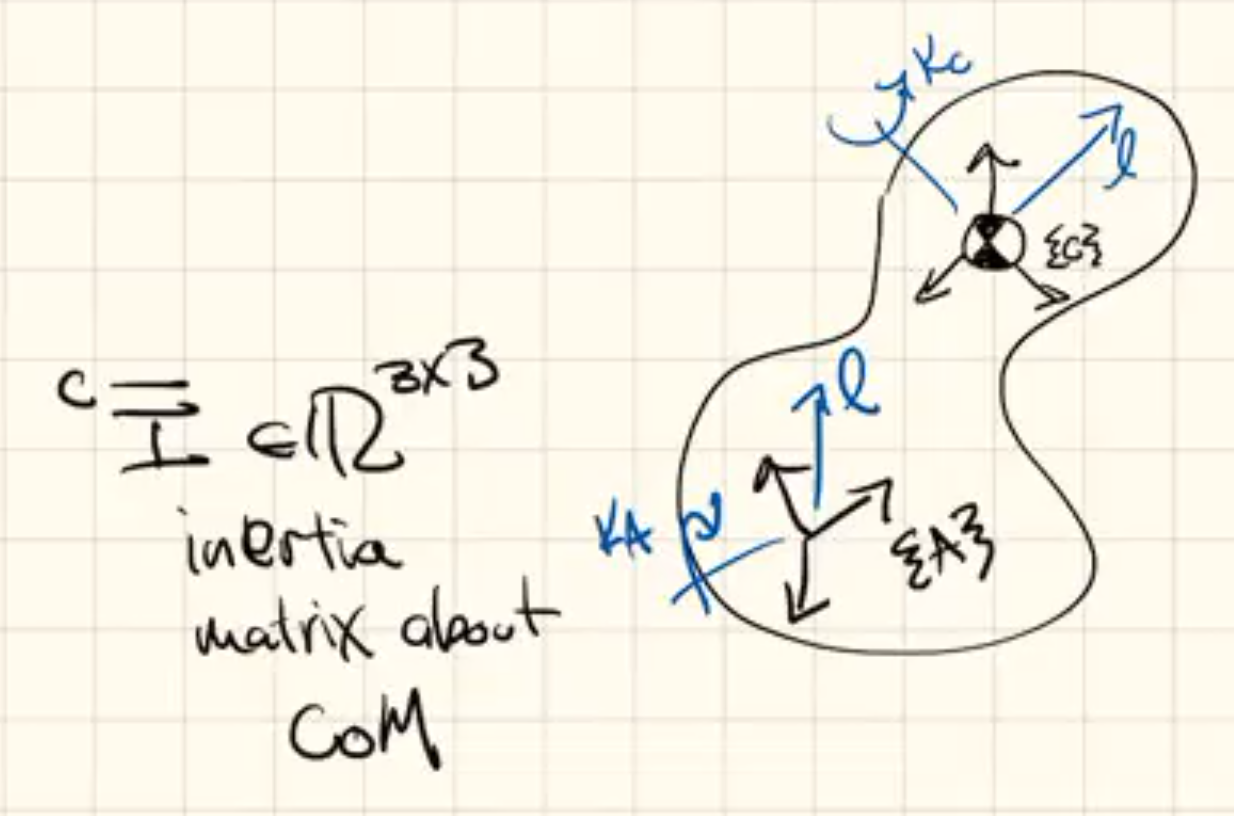 ᶜI̿ ∈ ℝ³ˣ³
inertia
matrix about
CoM
kc
l
{C}
l
kA
{A}